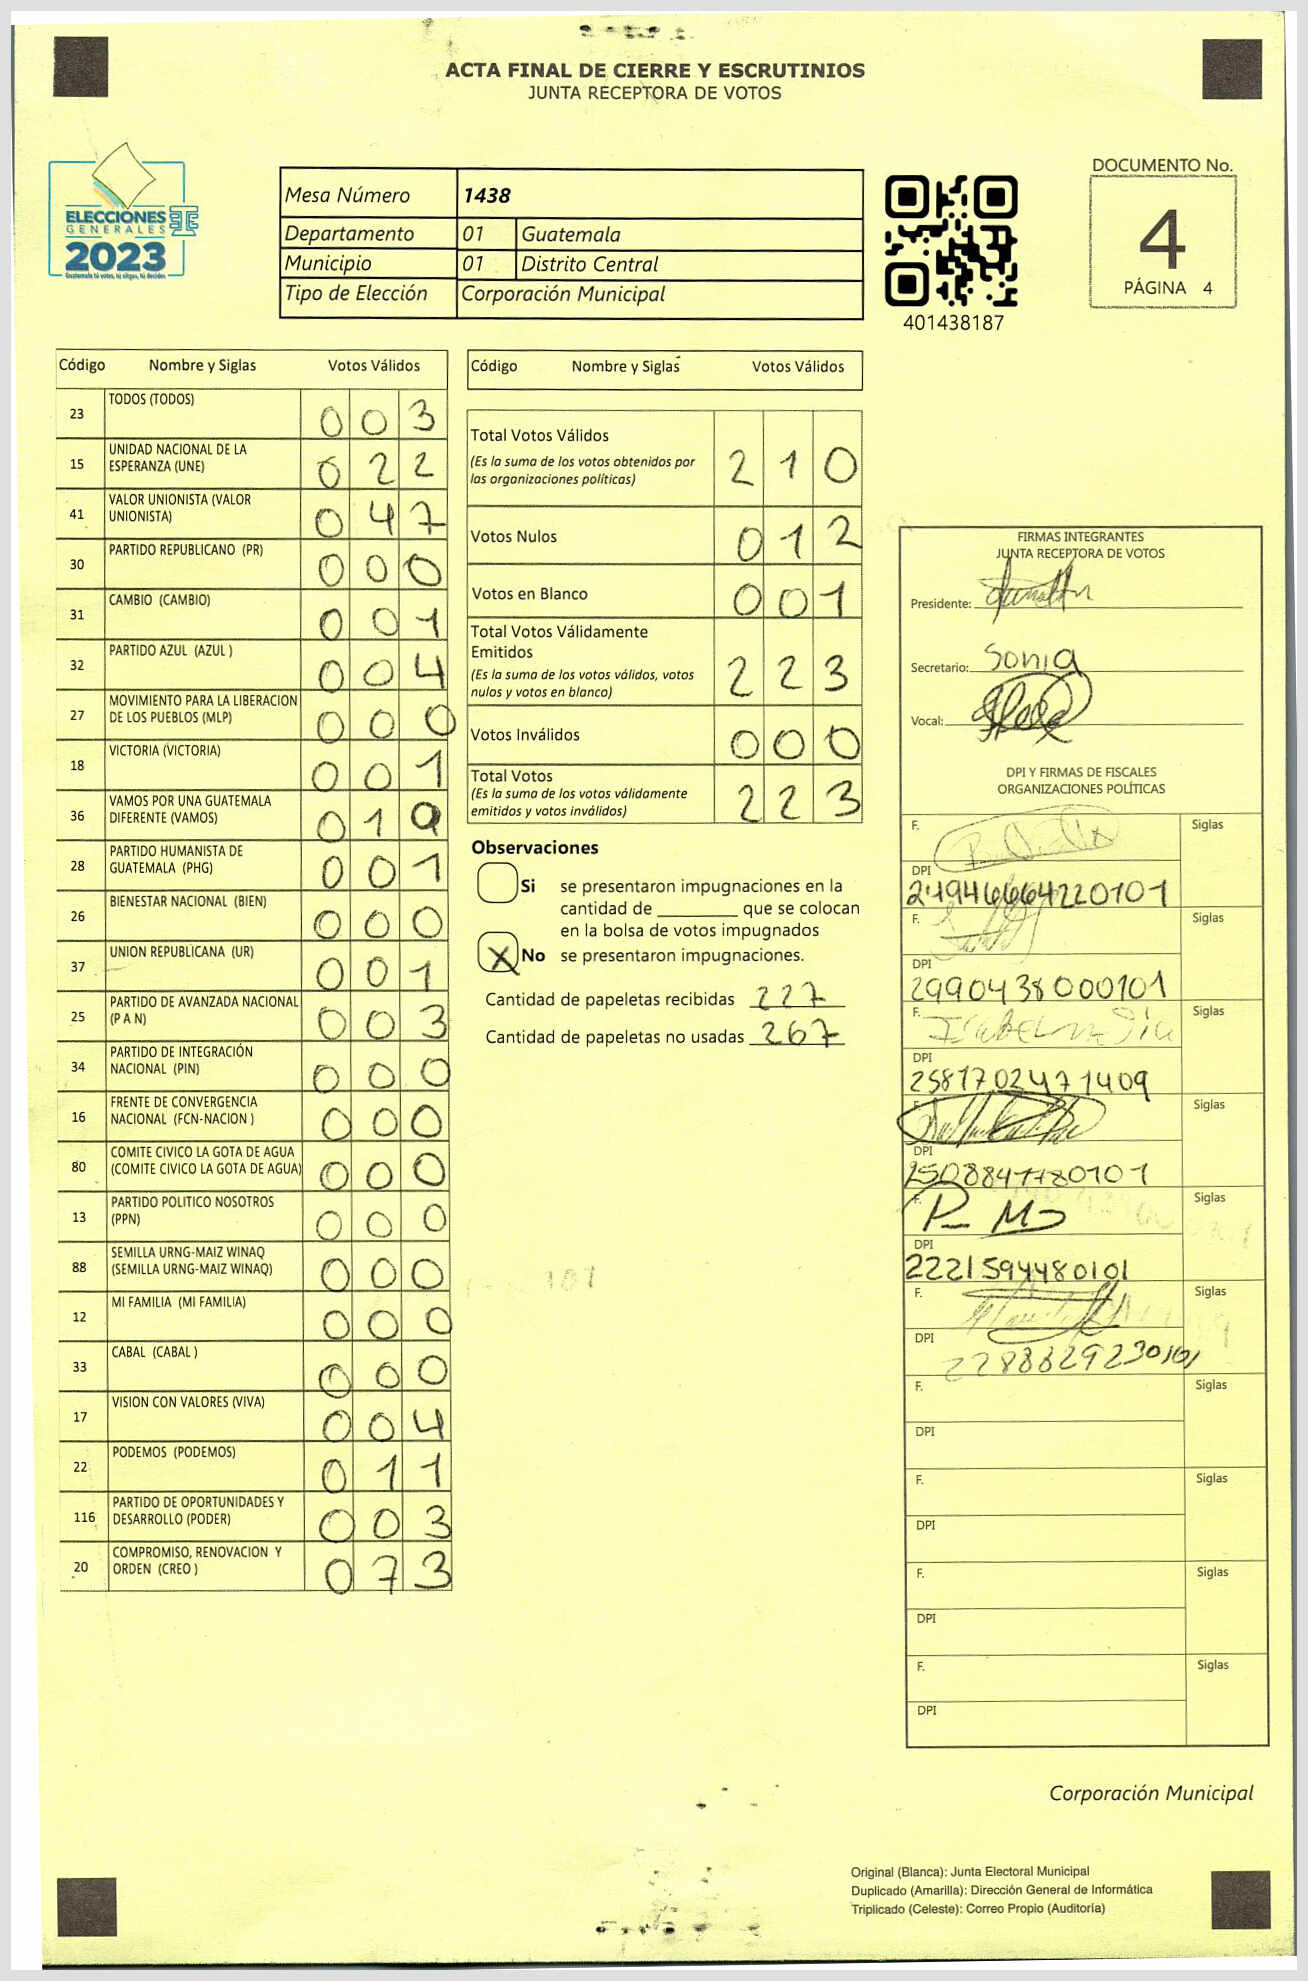 ACTA FINAL DE CIERRE Y ESCRUTINIOS
JUNTA RECEPTORA DE VOTOS
ELECCIONES
GENERALES
2023
Guatemala tú votas, tú eliges, tú decides
Mesa Número 1438
Departamento 01 Guatemala
Municipio 01 Distrito Central
Tipo de Elección Corporación Municipal
401438187
DOCUMENTO No.
4
PÁGINA 4
Código Nombre y Siglas Votos Válidos
23 TODOS (TODOS) 0 0 3
15 UNIDAD NACIONAL DE LA
ESPERANZA (UNE) 0 2 2
41 VALOR UNIONISTA (VALOR
UNIONISTA) 0 4 7
30 PARTIDO REPUBLICANO (PR) 0 0 0
31 CAMBIO (CAMBIO) 0 0 1
32 PARTIDO AZUL (AZUL ) 0 0 4
27 MOVIMIENTO PARA LA LIBERACION
DE LOS PUEBLOS (MLP) 0 0 0
18 VICTORIA (VICTORIA) 0 0 1
36 VAMOS POR UNA GUATEMALA
DIFERENTE (VAMOS) 0 1 9
28 PARTIDO HUMANISTA DE
GUATEMALA (PHG) 0 0 1
26 BIENESTAR NACIONAL (BIEN) 0 0 0
37 UNION REPUBLICANA (UR) 0 0 1
25 PARTIDO DE AVANZADA NACIONAL
(P A N) 0 0 3
34 PARTIDO DE INTEGRACIÓN
NACIONAL (PIN) 0 0 0
16 FRENTE DE CONVERGENCIA
NACIONAL (FCN-NACION ) 0 0 0
80 COMITE CIVICO LA GOTA DE AGUA
(COMITE CIVICO LA GOTA DE AGUA) 0 0 0
13 PARTIDO POLITICO NOSOTROS
(PPN) 0 0 0
88 SEMILLA URNG-MAIZ WINAQ
(SEMILLA URNG-MAIZ WINAQ) 0 0 0
12 MI FAMILIA (MI FAMILIA) 0 0 0
33 CABAL (CABAL ) 0 0 0
17 VISION CON VALORES (VIVA) 0 0 4
22 PODEMOS (PODEMOS) 0 1 1
116 PARTIDO DE OPORTUNIDADES Y
DESARROLLO (PODER) 0 0 3
20 COMPROMISO, RENOVACION Y
ORDEN (CREO ) 0 7 3
Código Nombre y Siglas Votos Válidos
Total Votos Válidos
(Es la suma de los votos obtenidos por
las organizaciones políticas) 2 1 0
Votos Nulos 0 1 2
Votos en Blanco 0 0 1
Total Votos Válidamente
Emitidos
(Es la suma de los votos válidos, votos
nulos y votos en blanco) 2 2 3
Votos Inválidos 0 0 0
Total Votos
(Es la suma de los votos válidamente
emitidos y votos inválidos) 2 2 3
Observaciones
Si se presentaron impugnaciones en la
cantidad de ________ que se colocan
en la bolsa de votos impugnados
X No se presentaron impugnaciones.
Cantidad de papeletas recibidas 227
Cantidad de papeletas no usadas 267
FIRMAS INTEGRANTES
JUNTA RECEPTORA DE VOTOS
Presidente:
Secretario: Sonia
Vocal:
DPI Y FIRMAS DE FISCALES
ORGANIZACIONES POLÍTICAS
F. Siglas
DPI
2494666422 0101
F. Siglas
DPI
2990438000101
F. Siglas
DPI
2581702471409
F. Siglas
DPI
2508847780101
F. Siglas
DPI
2221594480101
F. Siglas
DPI
2288829230101
F. Siglas
DPI
F. Siglas
DPI
F. Siglas
DPI
F. Siglas
DPI
Corporación Municipal
Original (Blanca): Junta Electoral Municipal
Duplicado (Amarilla): Dirección General de Informática
Triplicado (Celeste): Correo Propio (Auditoría)